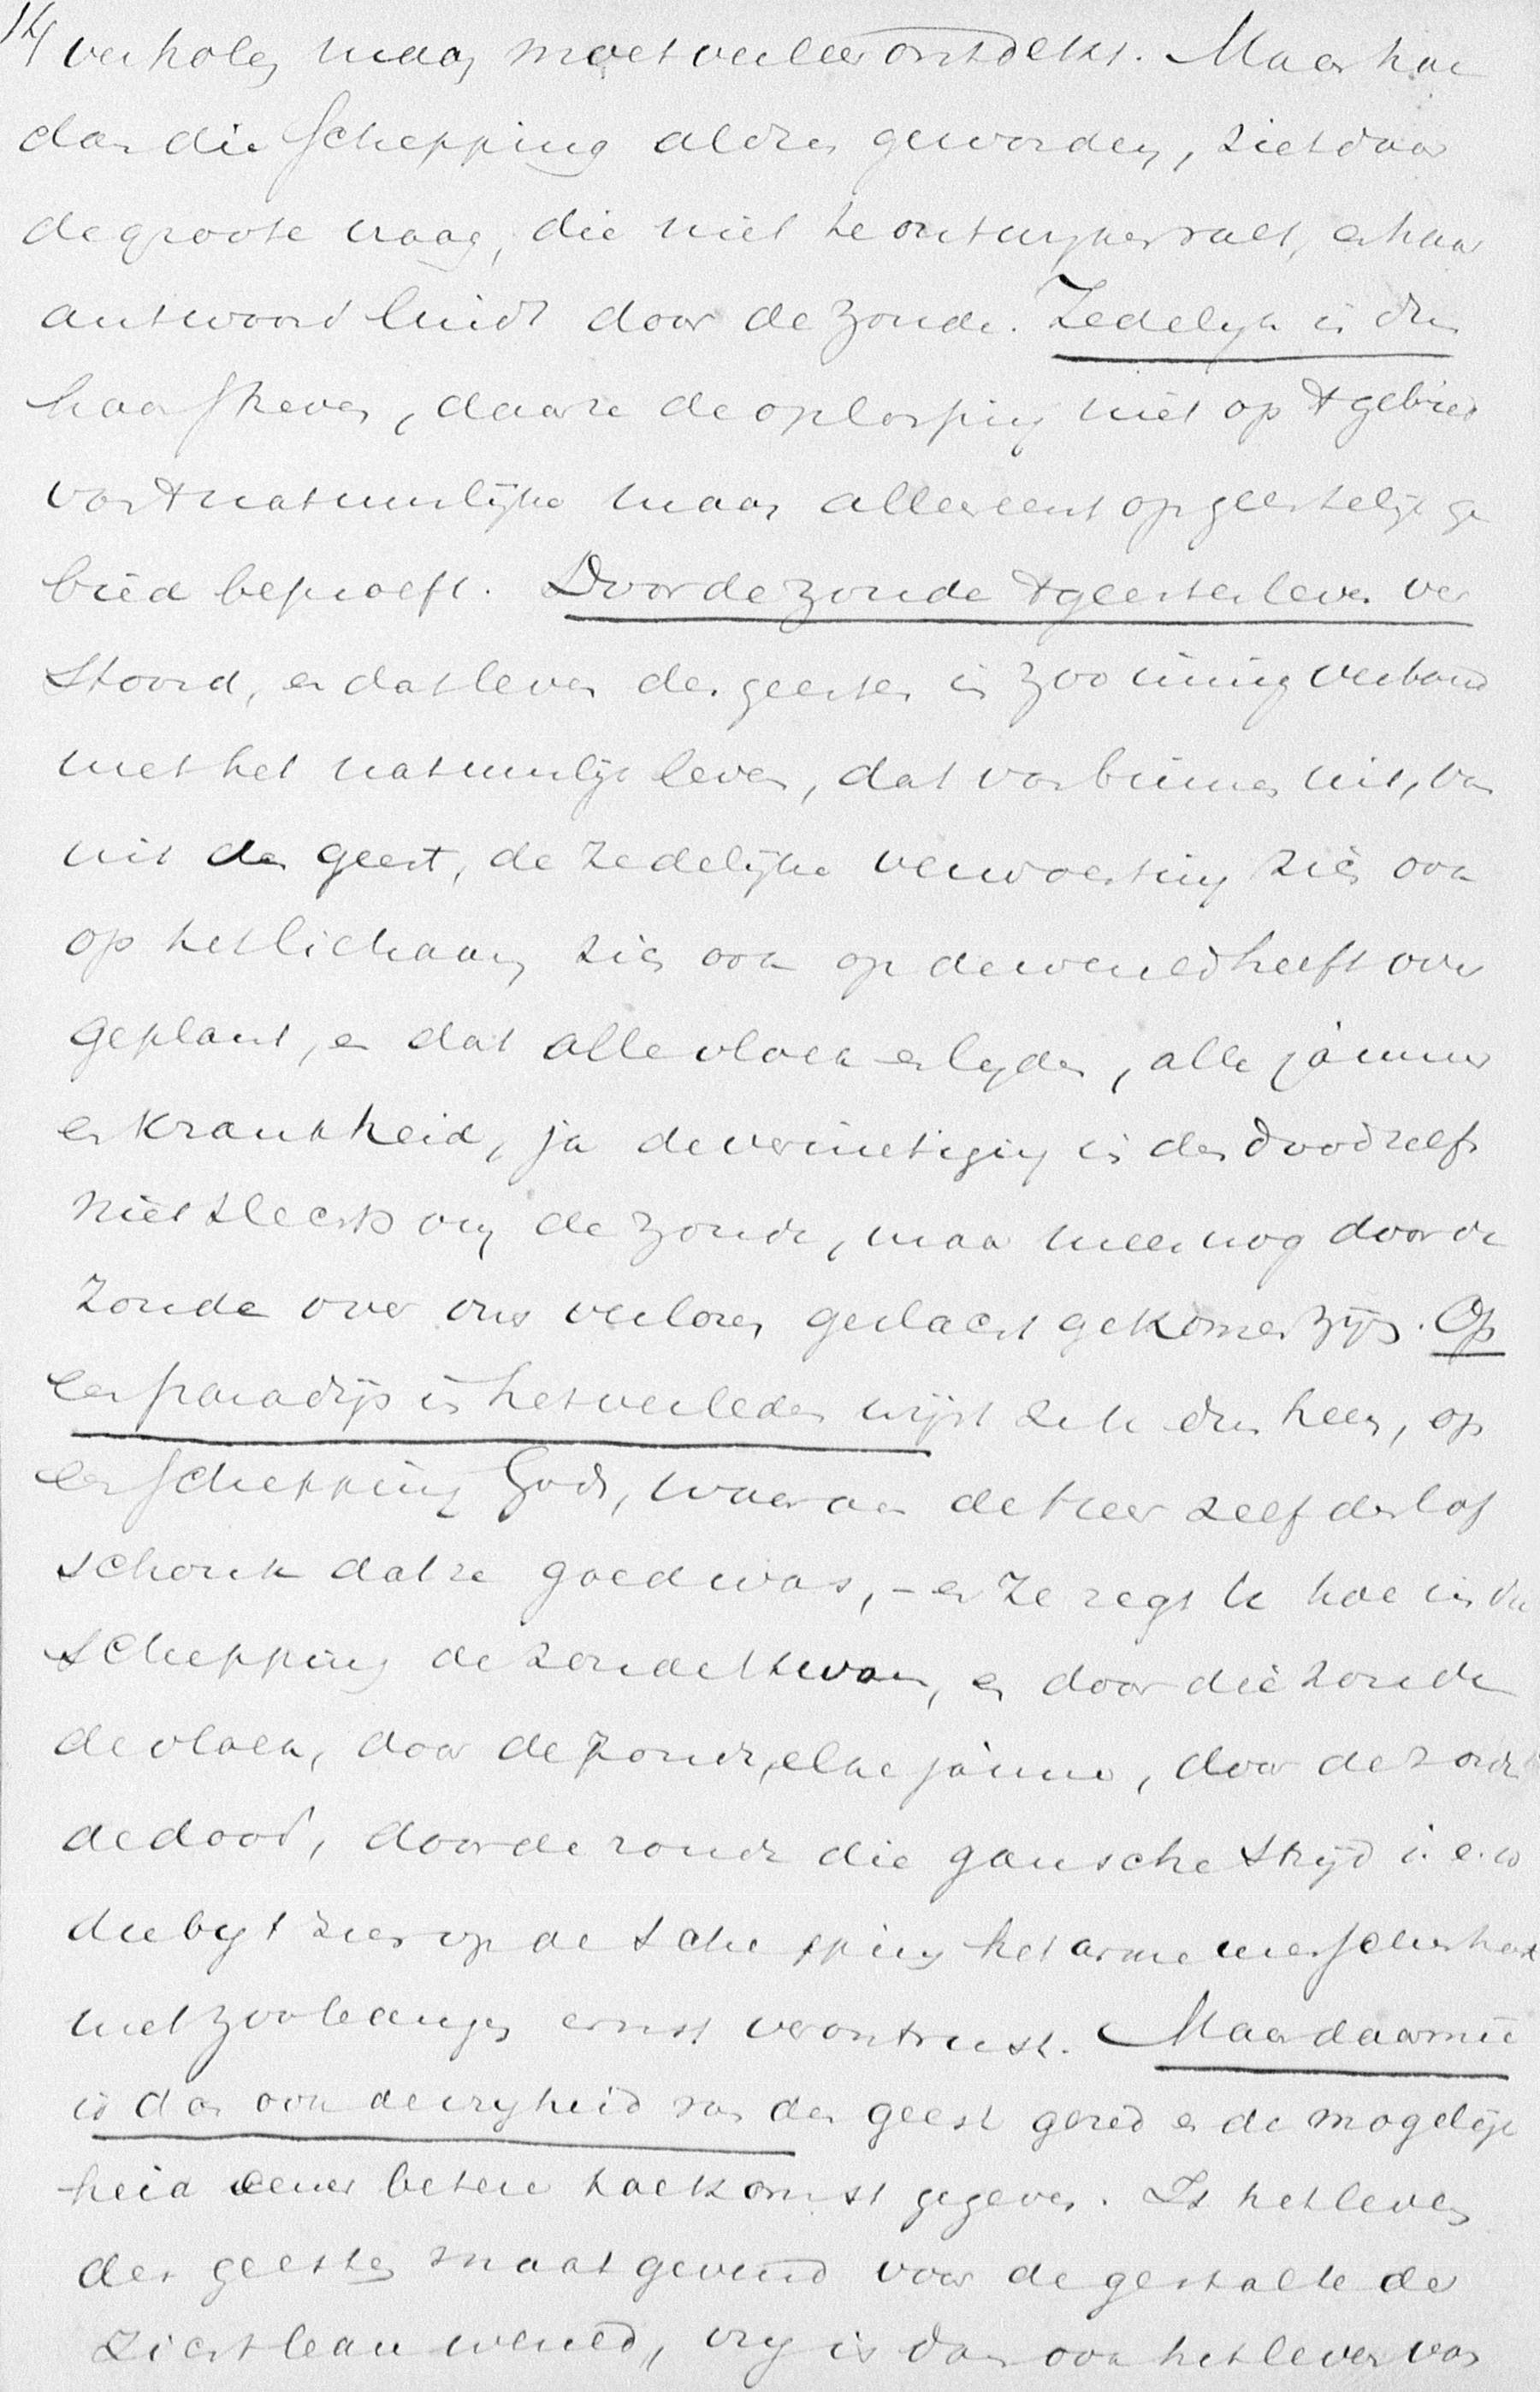 14 verholen maar moet veeleer ontdekt. Maar hoe
dan die schepping aldus geworden, ziet daar
de groote vraag, die niet te ontwijken valt, en haar
antwoord luidt door de zonde. Zedelijk is dus
haar streven, daar ze de oplossing niet op 't gebied
van 't natuurlijke maar allereerst op geestelijk ge
bied beproeft. Door de zonde 't geesten leven ver
stoord, en dat leven der geesten in zoo innig verband
met het natuurlijk leven, dat van binnen uit, van
uit den geest, de zedelijke verwoesting zich ook
op het lichaam zich ook op de wereld heeft over
geplant, en dat alle vloek en lijden, alle jammer
en krankheid, ja de vernietiging in den dood zelfs
niet slechts om de zonde, maar meer nog door de
zonde over ons verloren geslacht gekomen zijn. Op
een paradijs in het verleden wijst ze u dus heen, op
een schepping Gods, waaraan de Heer zelf den lof
schonk dat ze goed was, – en ze zegt u hoe in die
schepping de zonde kwam, en door die zonde
de vloek, door de zonde, elke jammer, door de zonde
de dood, door de zonde die gansche strijd i. e. w
die bij 't zien op de schepping het arme menschenhart
met zoo bangen ernst verontrust. Maar daarmeê
is dan ook de vrijheid van den geest gered en de mogelijk
heid eener betere toekomst gegeven. Is het leven
der geesten maatgevend voor de gestalte der
zichtbare wereld, vrij is dan ook het leven van